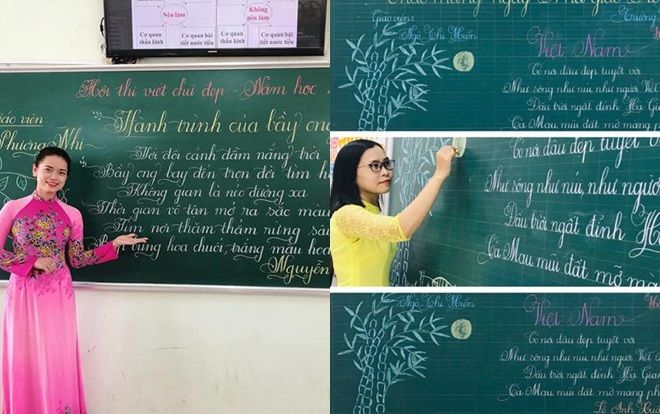 Nên làm
Không nên làm
Cơ quan thần kinh
Cơ quan bài tiết nước tiểu
Cơ quan thần kinh
Cơ quan bài tiết nước tiểu
Hội thi viết chữ đẹp - Năm học
giáo viên
Phương Nhi
Hành trình của bầy ong
Với đôi cánh đẫm nắng trời
Bầy ong bay đến trọn đời tìm
Không gian là nẻo đường xa
Thời gian vô tận mở ra sắc màu
Tìm nơi thăm thẳm rừng sâu
Bập bùng hoa chuối, trắng màu hoa
Nguyễn
Chào mừng ngày Nhà giáo
Giáo viên:
Trường
Ngô Thị Hiền
Việt Nam
Có nơi đâu đẹp tuyệt vời
Như sông như núi, như người Việt
Đầu trời ngất đỉnh Hà Giang
Cà Mau mũi đất mỡ màng
Có nơi đâu đẹp tuyệt
Như sông như núi, như người
Đầu trời ngất đỉnh
Cà Mau mũi đất mỡ
Ngô Thị Hiền
Việt Nam
Có nơi đâu đẹp tuyệt vời
Như sông như núi, như người Việt
Đầu trời ngất đỉnh Hà Giang
Cà Mau mũi đất mỡ màng
Lê Anh